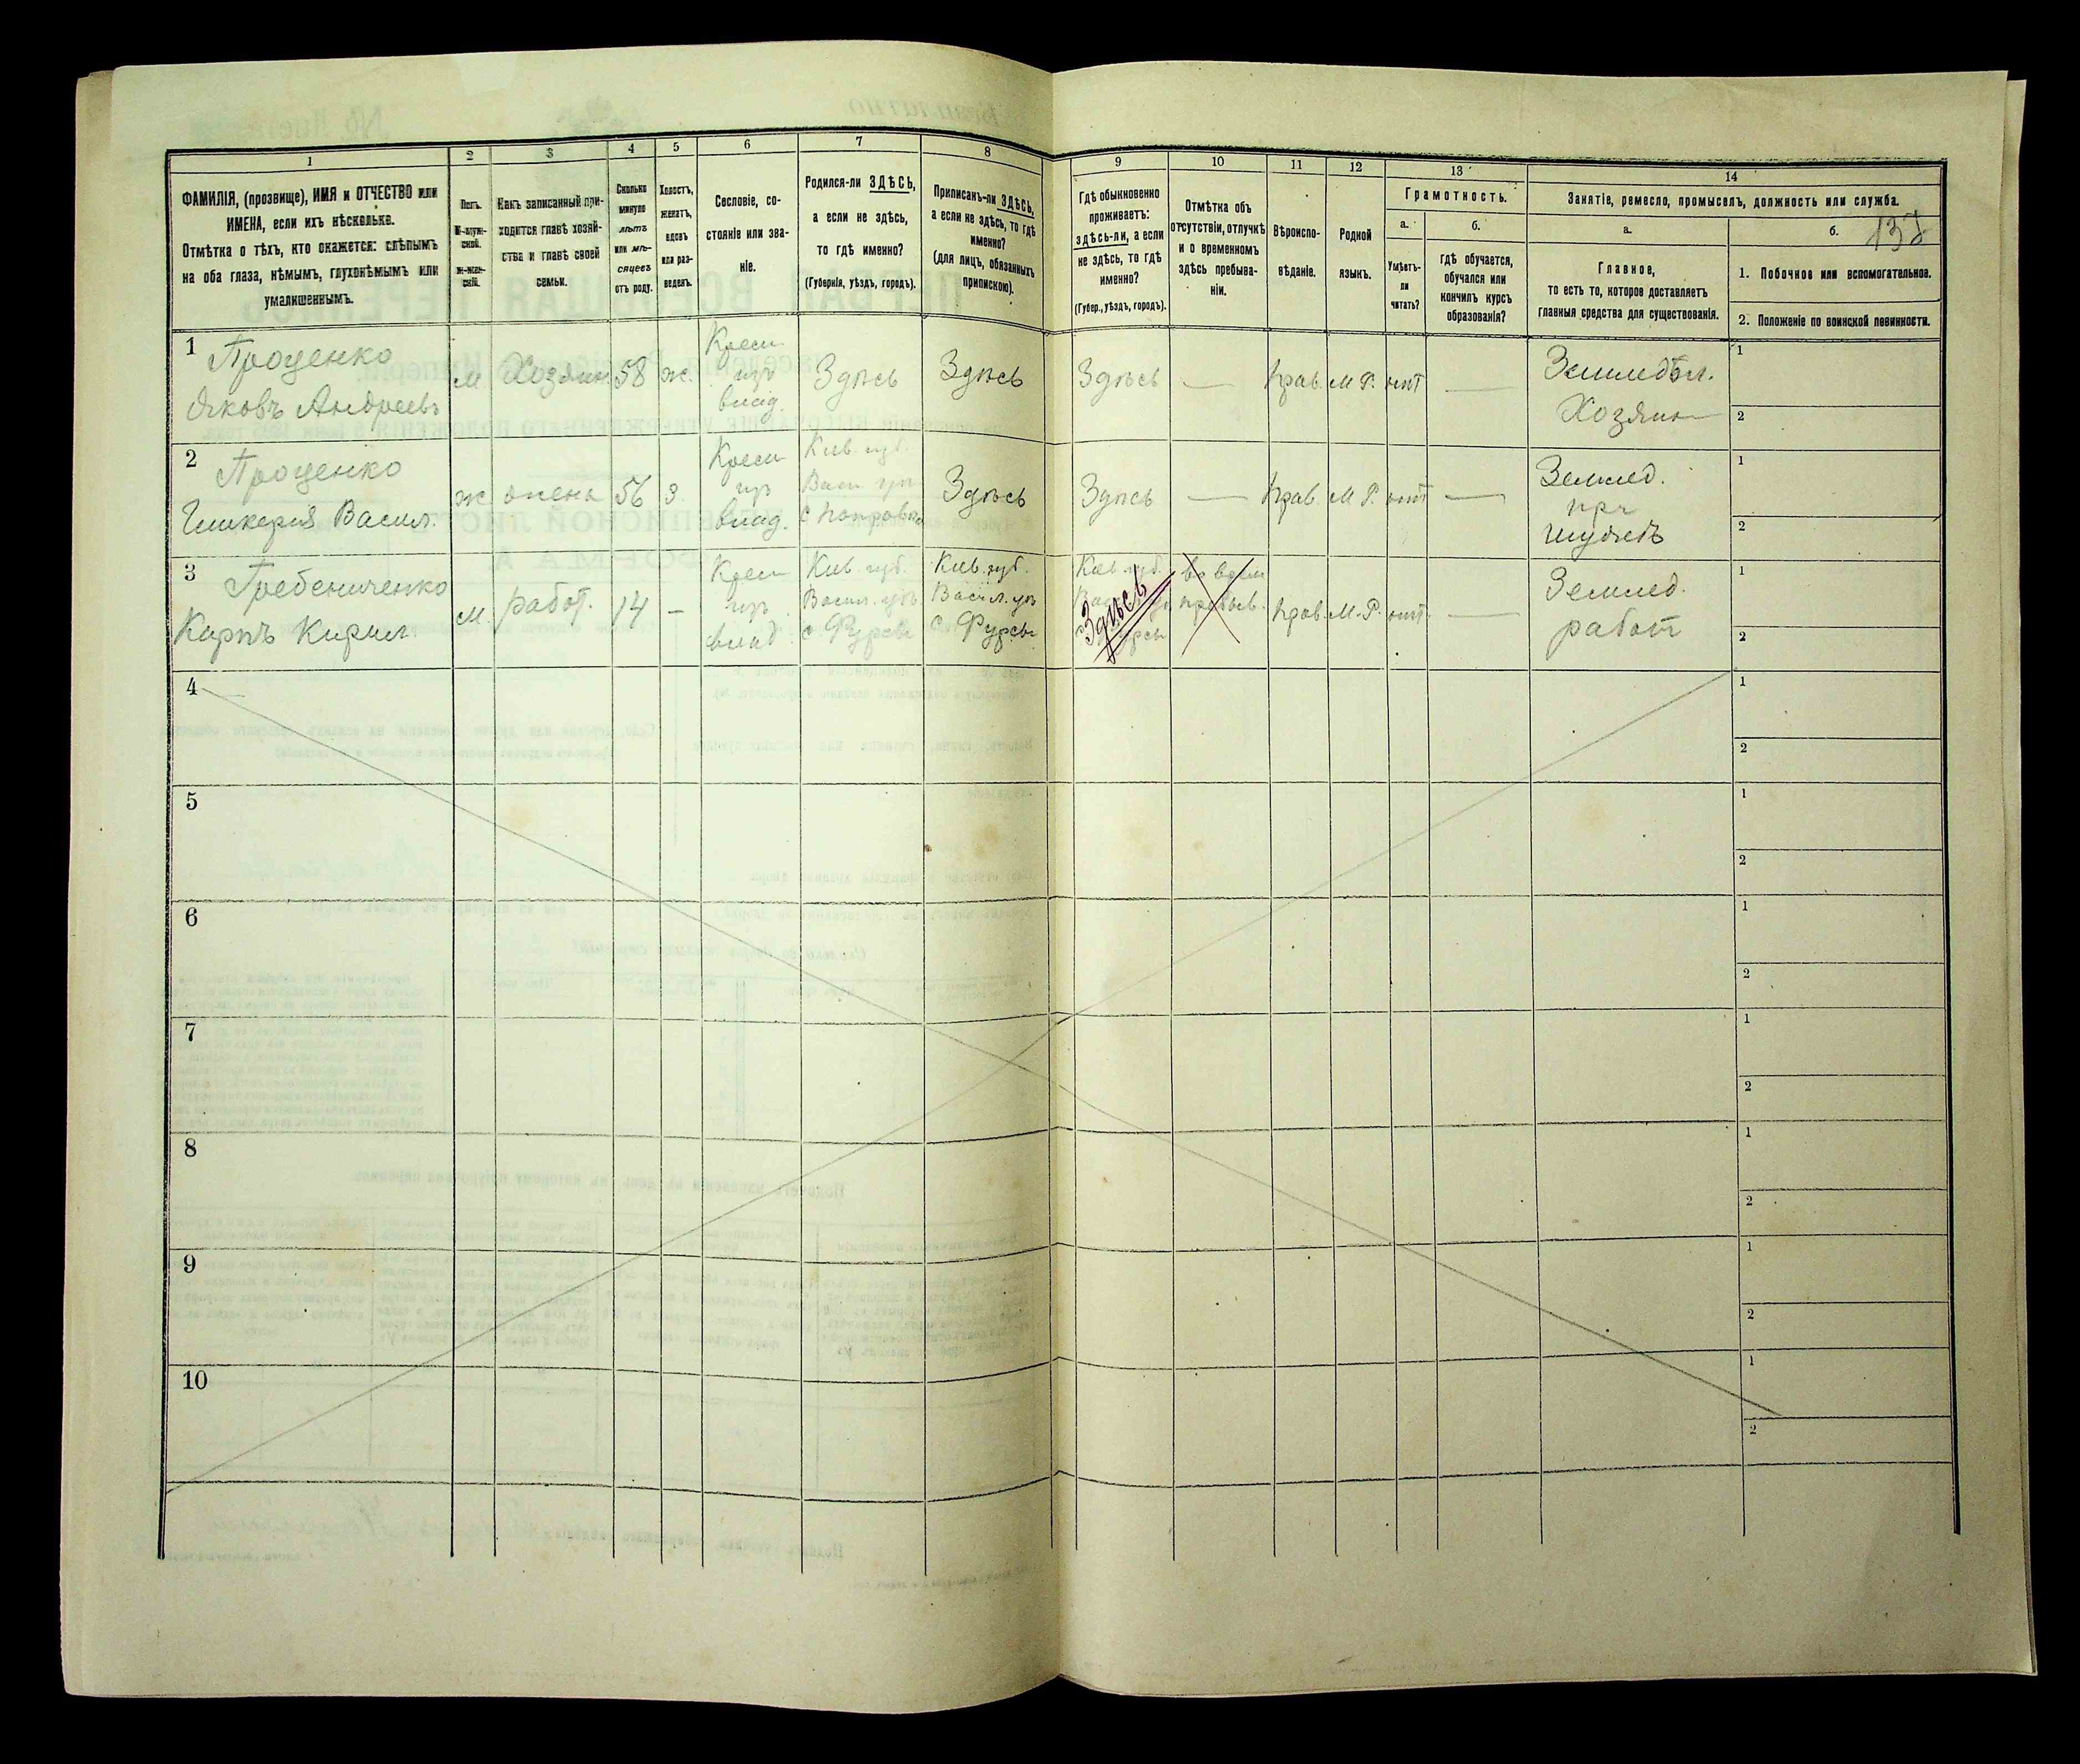 1
2
3
4
5
6
7
8
ФАМИЛІЯ, (прозвище), ИМЯ и ОТЧЕСТВО или
ИМЕНА, если ихъ нѣсколько.
Отмѣтка о тѣхъ, кто окажется: слѣпымъ
на оба глаза, нѣмымъ, глухонѣмымъ или
умалишеннымъ.
Полъ.
М-муж-
ской.
ж-жен-
скій.
Какъ записанный при-
ходится главѣ хозяй-
ства и главѣ своей
семьи.
Сколько
минуло
лѣтъ
или мѣ-
сяцевъ
отъ роду.
Холостъ,
женатъ,
вдовъ
или раз-
веденъ.
Сословіе, со-
стояніе или зва-
ніе.
Родился-ли ЗДѢСЬ,
а если не здѣсь,
то гдѣ именно?
(Губернія, уѣздъ, городъ).
Приписанъ-ли ЗДѢСЬ,
а если не здѣсь, то гдѣ
именно?
(для лицъ, обязанныхъ
припискою).
9
10
11
12
13
14
Гдѣ обыкновенно
проживаетъ:
здѣсь-ли, а если
не здѣсь, то гдѣ
именно?
(Губер., уѣздъ, городъ).
Отмѣтка объ
отсутствіи, отлучкѣ
и о временномъ
здѣсь пребыва-
ніи.
Вѣроиспо-
вѣданіе.
Родной
языкъ.
Грамотность.
а.
б.
Умѣетъ-
ли
читать?
гдѣ обучается,
обучался или
кончилъ курсъ
образованія?
Занятіе, ремесло, промыселъ, должность или служба.
а.
б.
Главное,
то есть то, которое доставляетъ
главныя средства для существованія.
1. Побочное или вспомогательное.
2. Положеніе по воинской повинности.
1
Проценко
Яковъ Андреевъ
м
Хозяин
58
ж.
Крест
изъ
влад.
Здѣсь
Здѣсь
Здѣсь
—
прав.
М.Р.
нѣт
—
Земледѣл.
Хозяин
1
2
2
Проценко
Гликерия Васил.
ж
жена
56
з.
Крест
изъ
влад.
Киев. губ.
Васил. уѣз
Здѣсь
Здѣсь
—
прав.
М.Р.
нѣт
—
Землед.
при
мужѣ
1
2
3
Гребениченко
Карпъ Кирил.
м.
работ.
14
—
Крест
изъ
влад.
Киев. губ.
Васил. уѣз.
с. Фурсы
Киев. губ.
Васил. уѣз
с. Фурсы
Киев. губ.
Фурсы
Здѣсь
прав.
М.Р.
нѣт
—
Землед.
работ
1
2
4
1
2
5
1
2
6
1
2
7
1
2
8
1
2
9
1
2
10
1
2